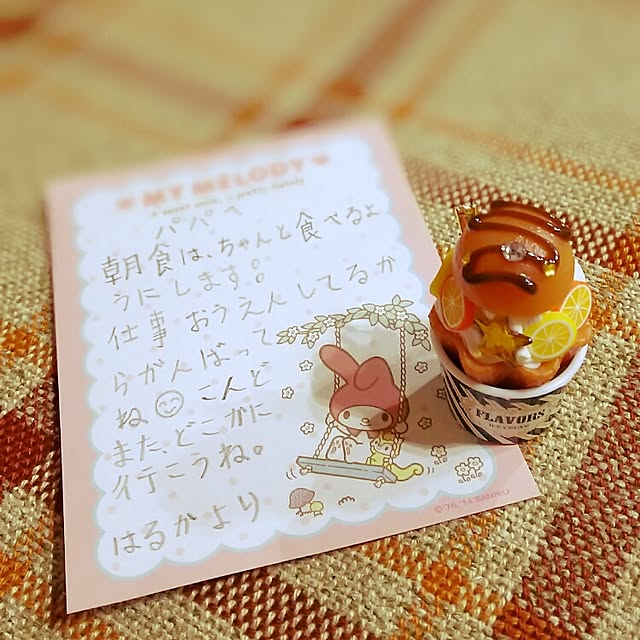 MY MELODY
パパへ
朝食は、ちゃんと食べるよ
うにします。
仕事 おうえんしてるか
らがんばって
ね こんど
また、どこかに
行こうね。
はるかより
©'76,'14 SANRIO
FLAVORS